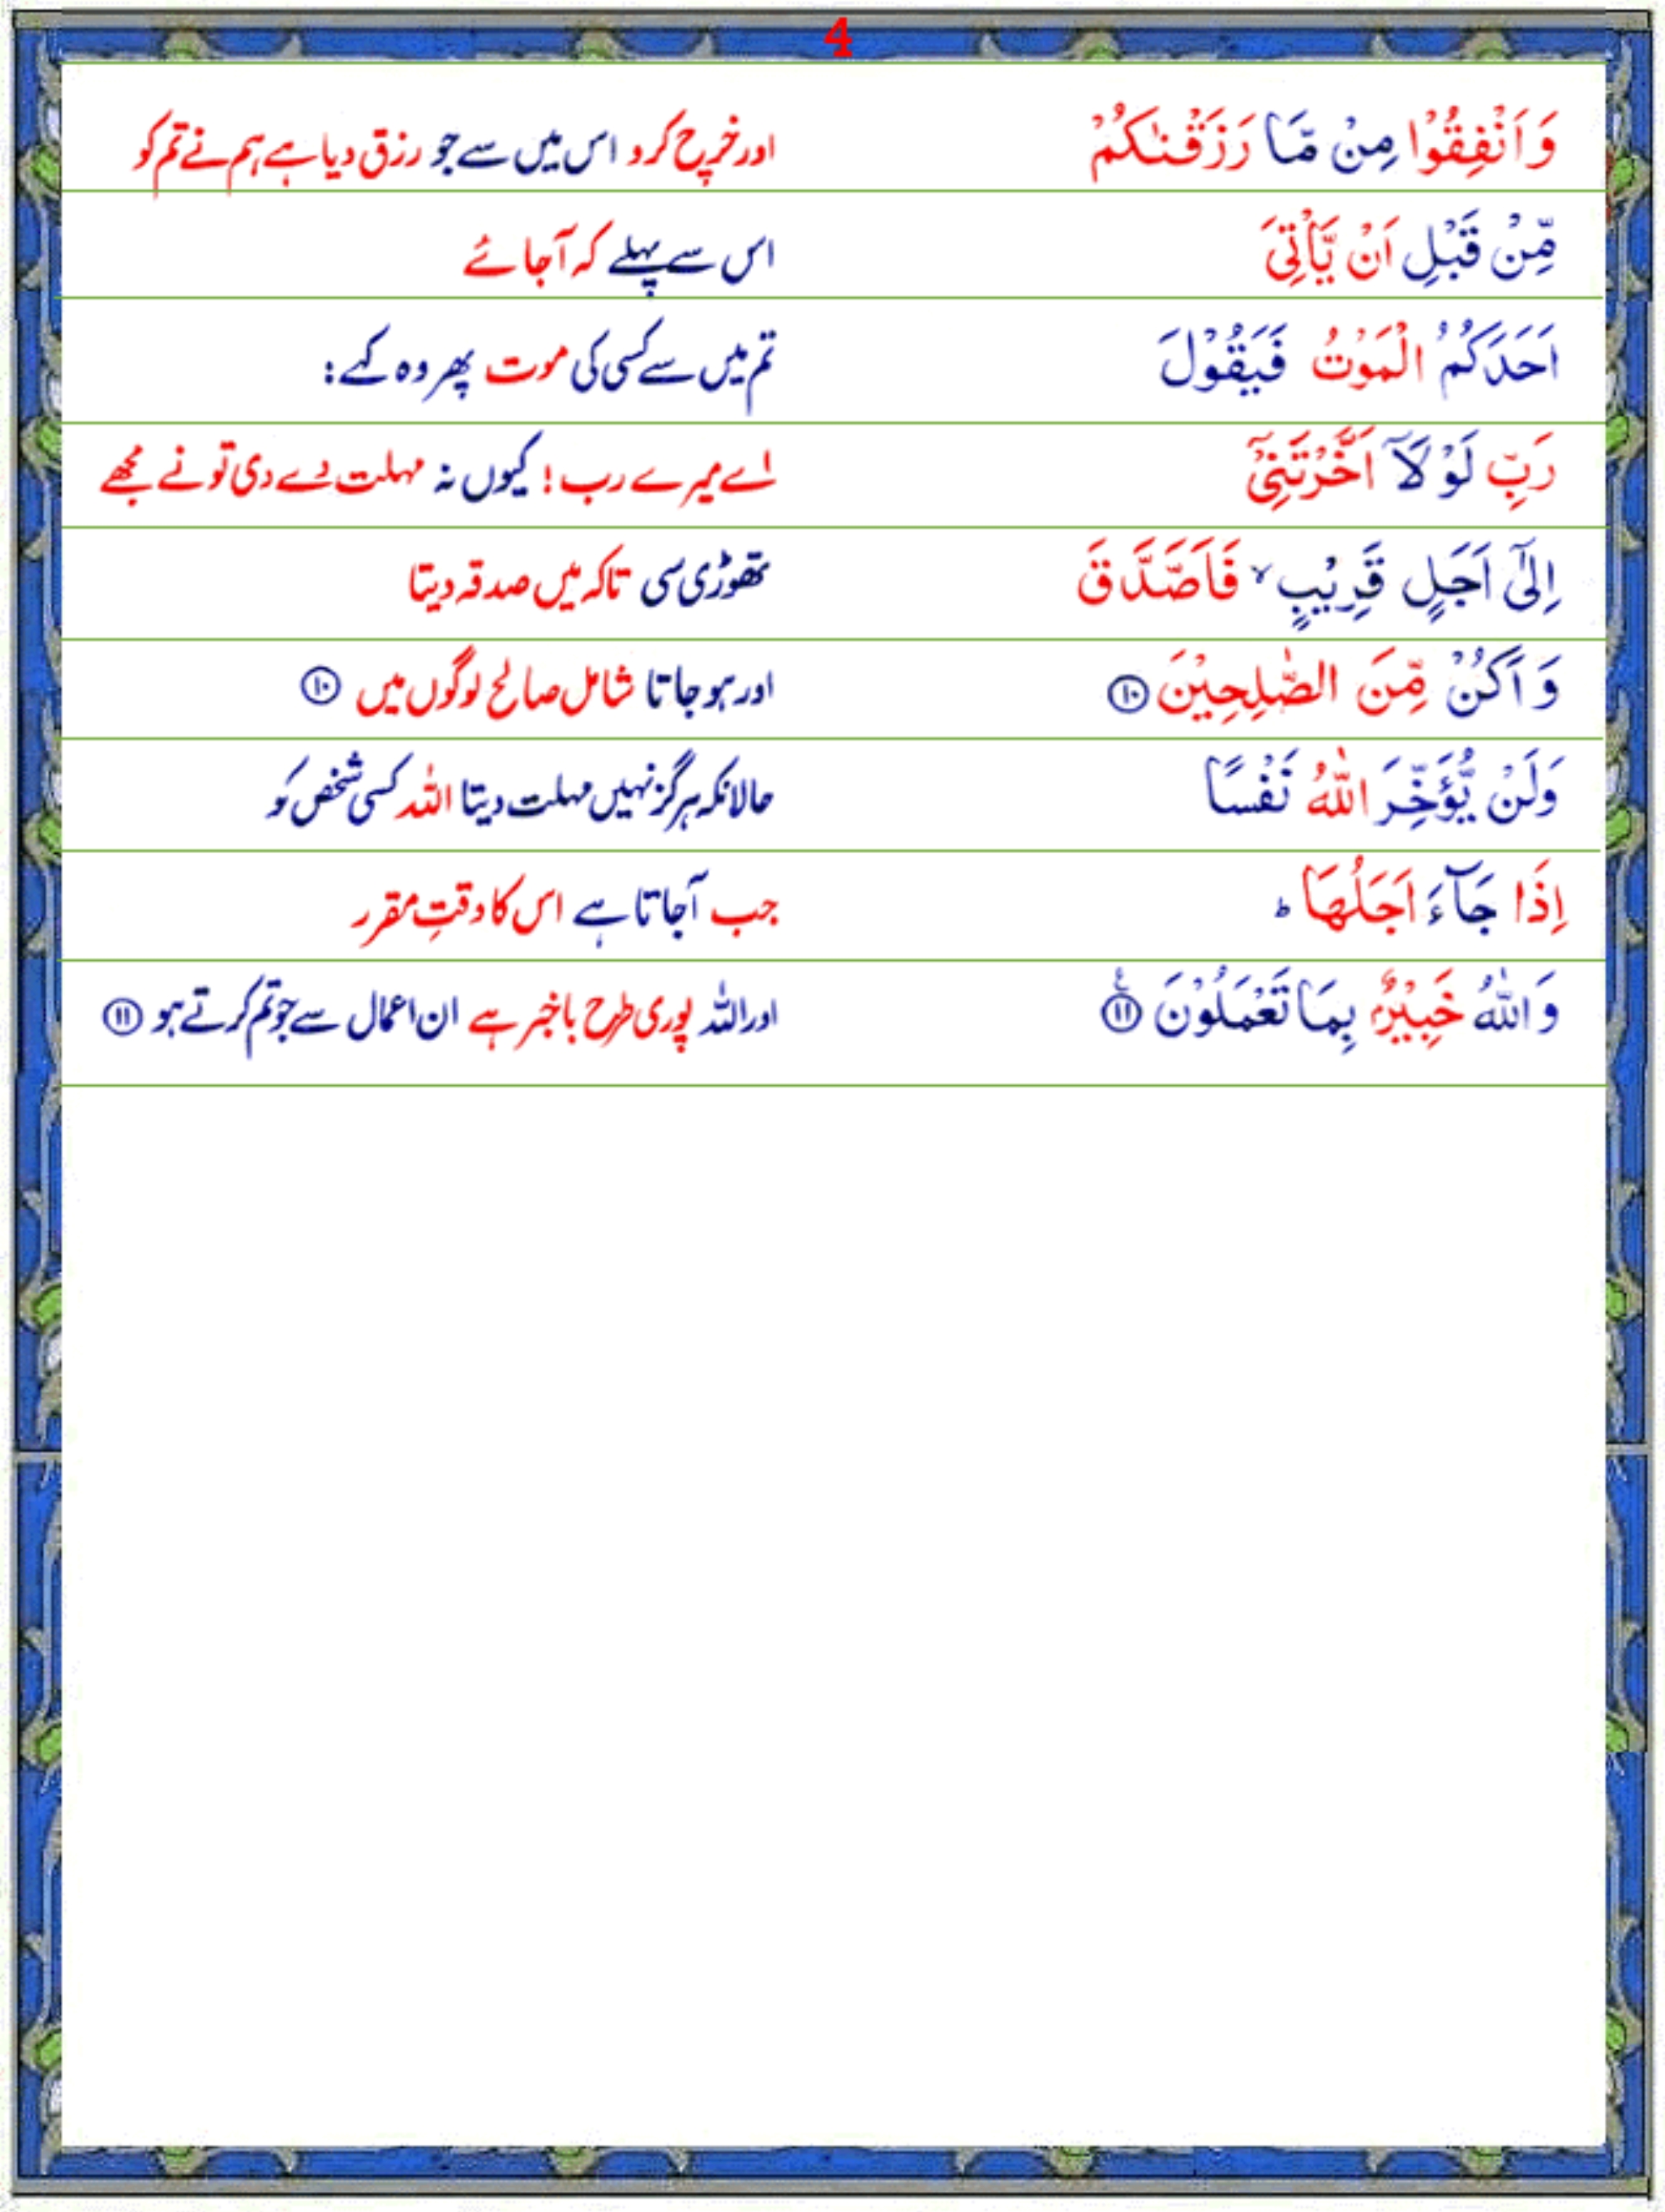 4
وَاَنْفِقُوْا مِنْ مَّا رَزَقْنٰكُمْ اور خرچ کرو اس میں سے جو رزق دیا ہے ہم نے تم کو
مِّنْ قَبْلِ اَنْ يَّاْتِيَ اس سے پہلے کہ آجائے
اَحَدَكُمُ الْمَوْتُ فَيَقُوْلَ تم میں سے کسی کی موت پھر وہ کہے:
رَبِّ لَوْ لَاۤ اَخَّرْتَنِيْۤ اے میرے رب! کیوں نہ مہلت دے دی تو نے مجھے
اِلٰۤى اَجَلٍ قَرِيْبٍ ۙ فَاَصَّدَّقَ تھوڑی سی تاکہ میں صدقہ دیتا
وَ اَكُنْ مِّنَ الصّٰلِحِيْنَ ۱۰ اور ہو جاتا شامل صالح لوگوں میں ۱۰
وَلَنْ يُّؤَخِّرَ اللّٰهُ نَفْسًا حالانکہ ہرگز نہیں مہلت دیتا اللہ کسی شخص کو
اِذَا جَآءَ اَجَلُهَا ؕ جب آجاتا ہے اس کا وقتِ مقرر
وَ اللّٰهُ خَبِيْرٌۢ بِمَا تَعْمَلُوْنَ ۱۱ اور اللہ پوری طرح باخبر ہے ان اعمال سے جو تم کرتے ہو ۱۱